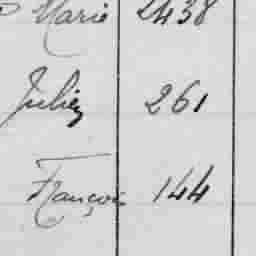 Marie 2438
Julien 261
François 144